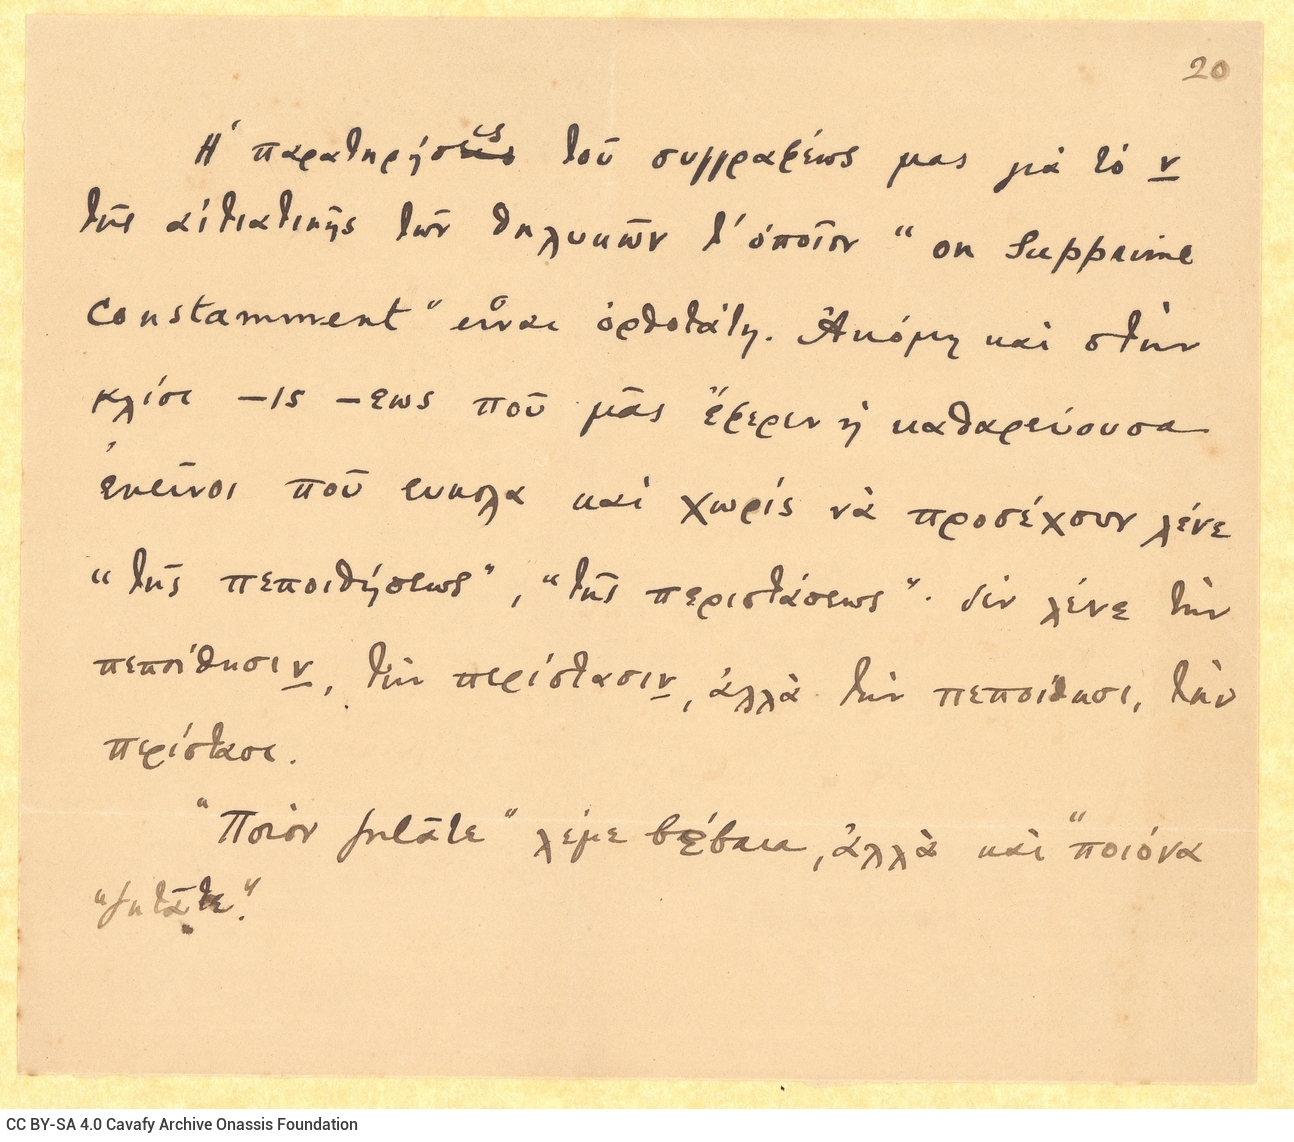 20
Ἡ παρατηρήσεις τοῦ συγγραφέως μας γιὰ τὸ ν
τῆς αἰτιατικῆς τῶν θηλυκῶν τ' ὁποῖον “on supprime
constamment” εἶναι ὀρθοτάτη. Ἀκόμη καὶ στὴν
κλίσι –ις –εως ποῦ μᾶς ἔφεριν ἡ καθαρεύουσα
ἐκεῖνοι ποῦ ευκολα καὶ χωρίς νὰ προσέχουν λένε
“τῆς πεποιθήσεως”, “τῆς περιστάσεως”· δὲν λένε τὴν
πεποίθησιν, τὴν περίστασιν, ἀλλὰ τὴν πεποίθησι, τὴν
περίστασι.
“Ποιὸν ζητᾶτε” λέμε βέβαια, ἀλλὰ καὶ “ποιόνα
“ζητᾶτε”.
CC BY-SA 4.0 Cavafy Archive Onassis Foundation